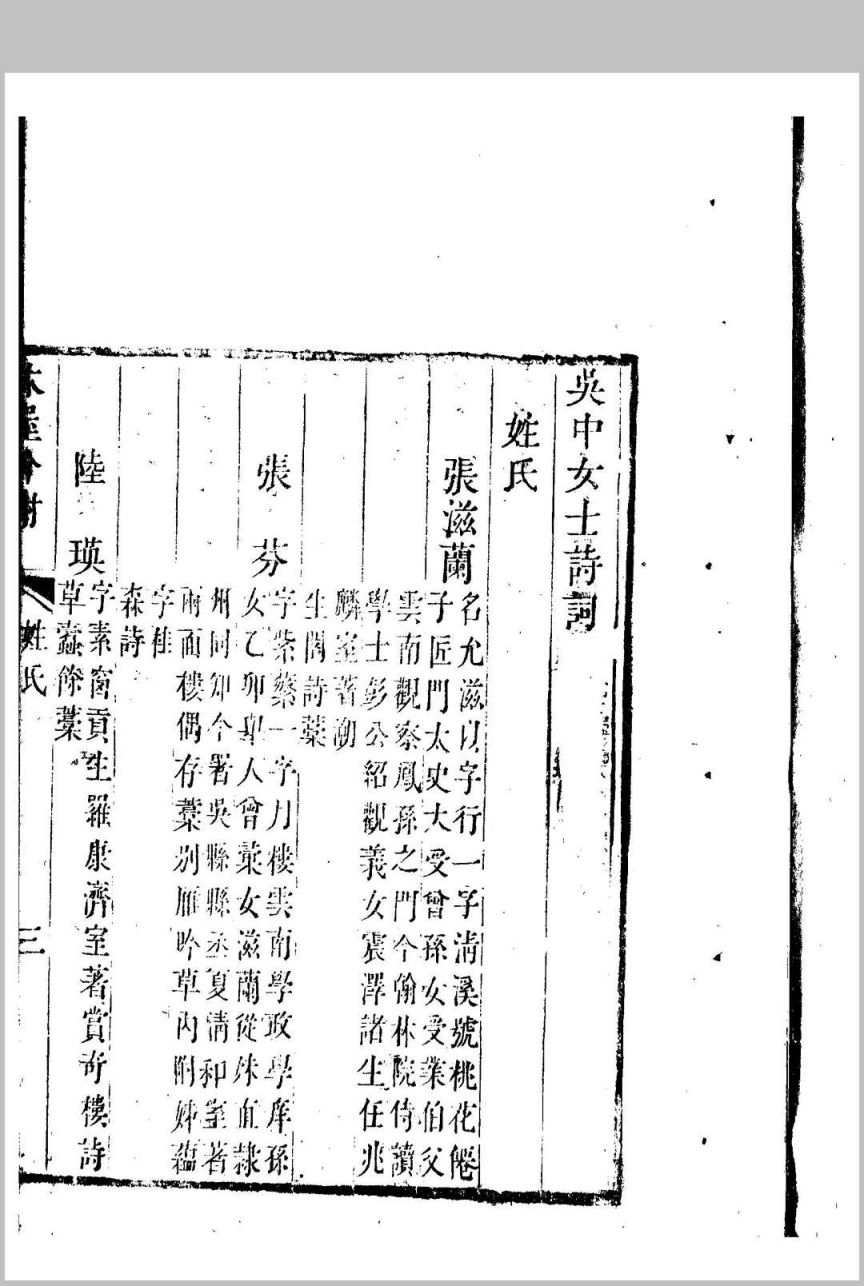 吳中女士詩詞
姓氏
張滋蘭
名允滋以字行一字清溪號桃花僊
子匠門太史大受曾孫女受業伯父
雲南觀察鳳孫之門今翰林院侍讀
學士彭公紹觀義女震澤諸生任兆
麟室著潮
生閣詩藁
張芬
字紫蘩一字月樓雲南學政學庠孫
女乙卯舉人曾彙女滋蘭從妹直隸
州同知今署吳縣縣丞夏清和室著
兩面樓偶存藁別雁吟草內附姊蘊
字桂
森詩
陸瑛
字素窗貢生羅康濟室著賞奇樓詩
草蠹餘藁
姓氏
三